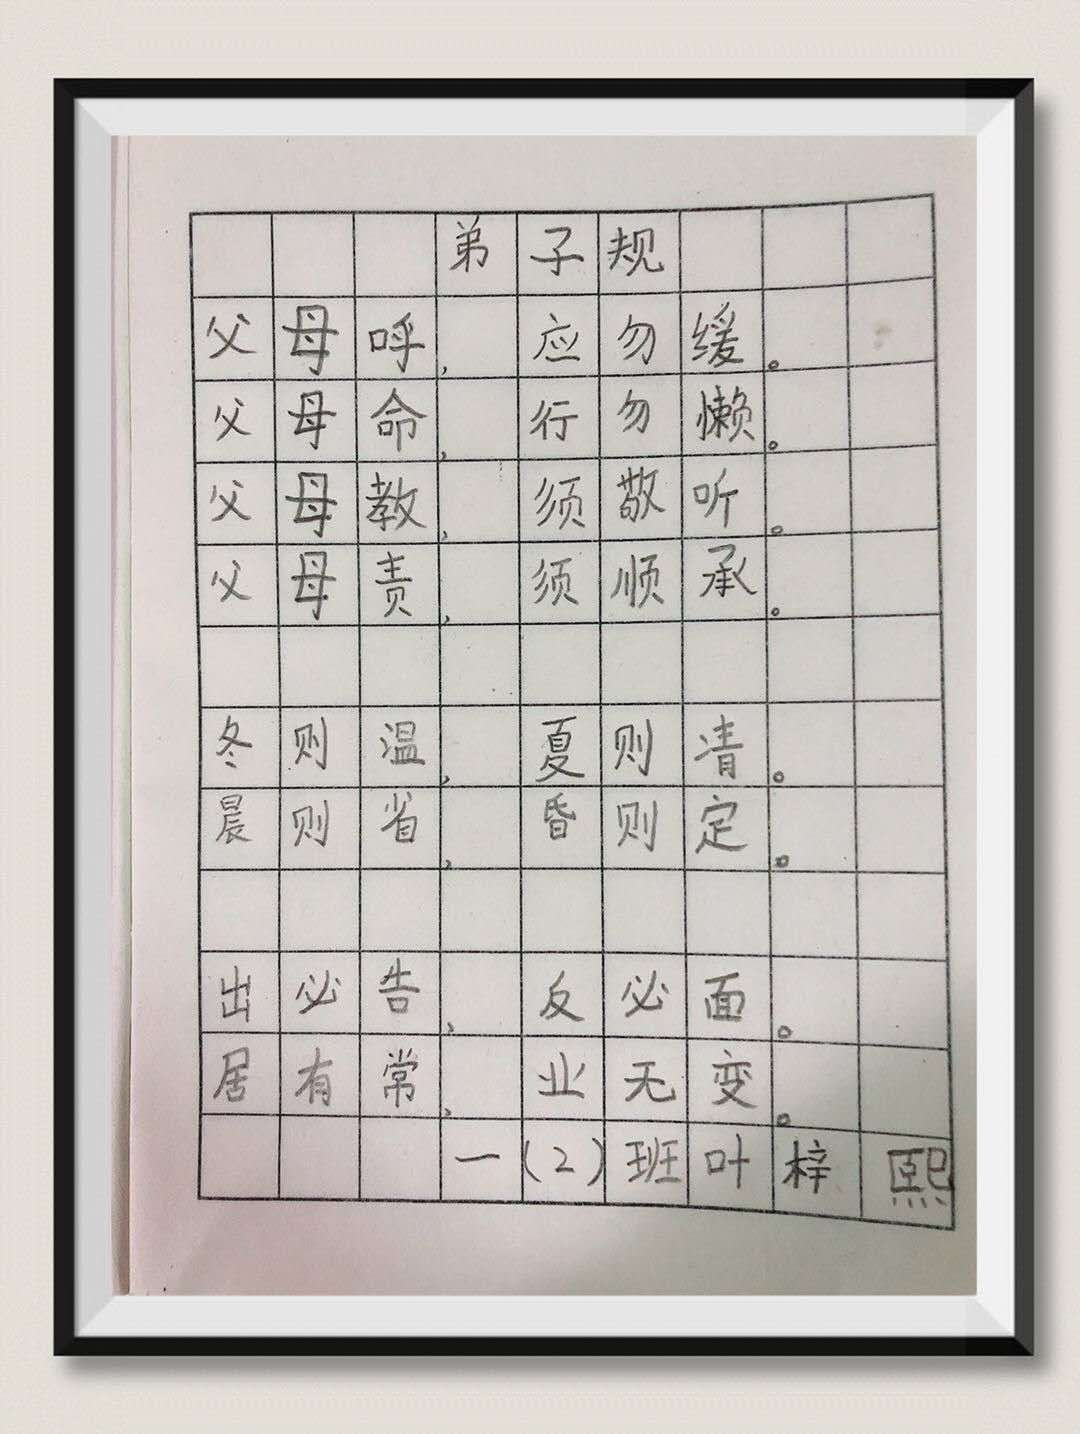 弟子规
父母呼，应勿缓。
父母命，行勿懒。
父母教，须敬听。
父母责，须顺承。
冬则温，夏则凊。
晨则省，昏则定。
出必告，反必面。
居有常，业无变。
一(2)班叶梓熙